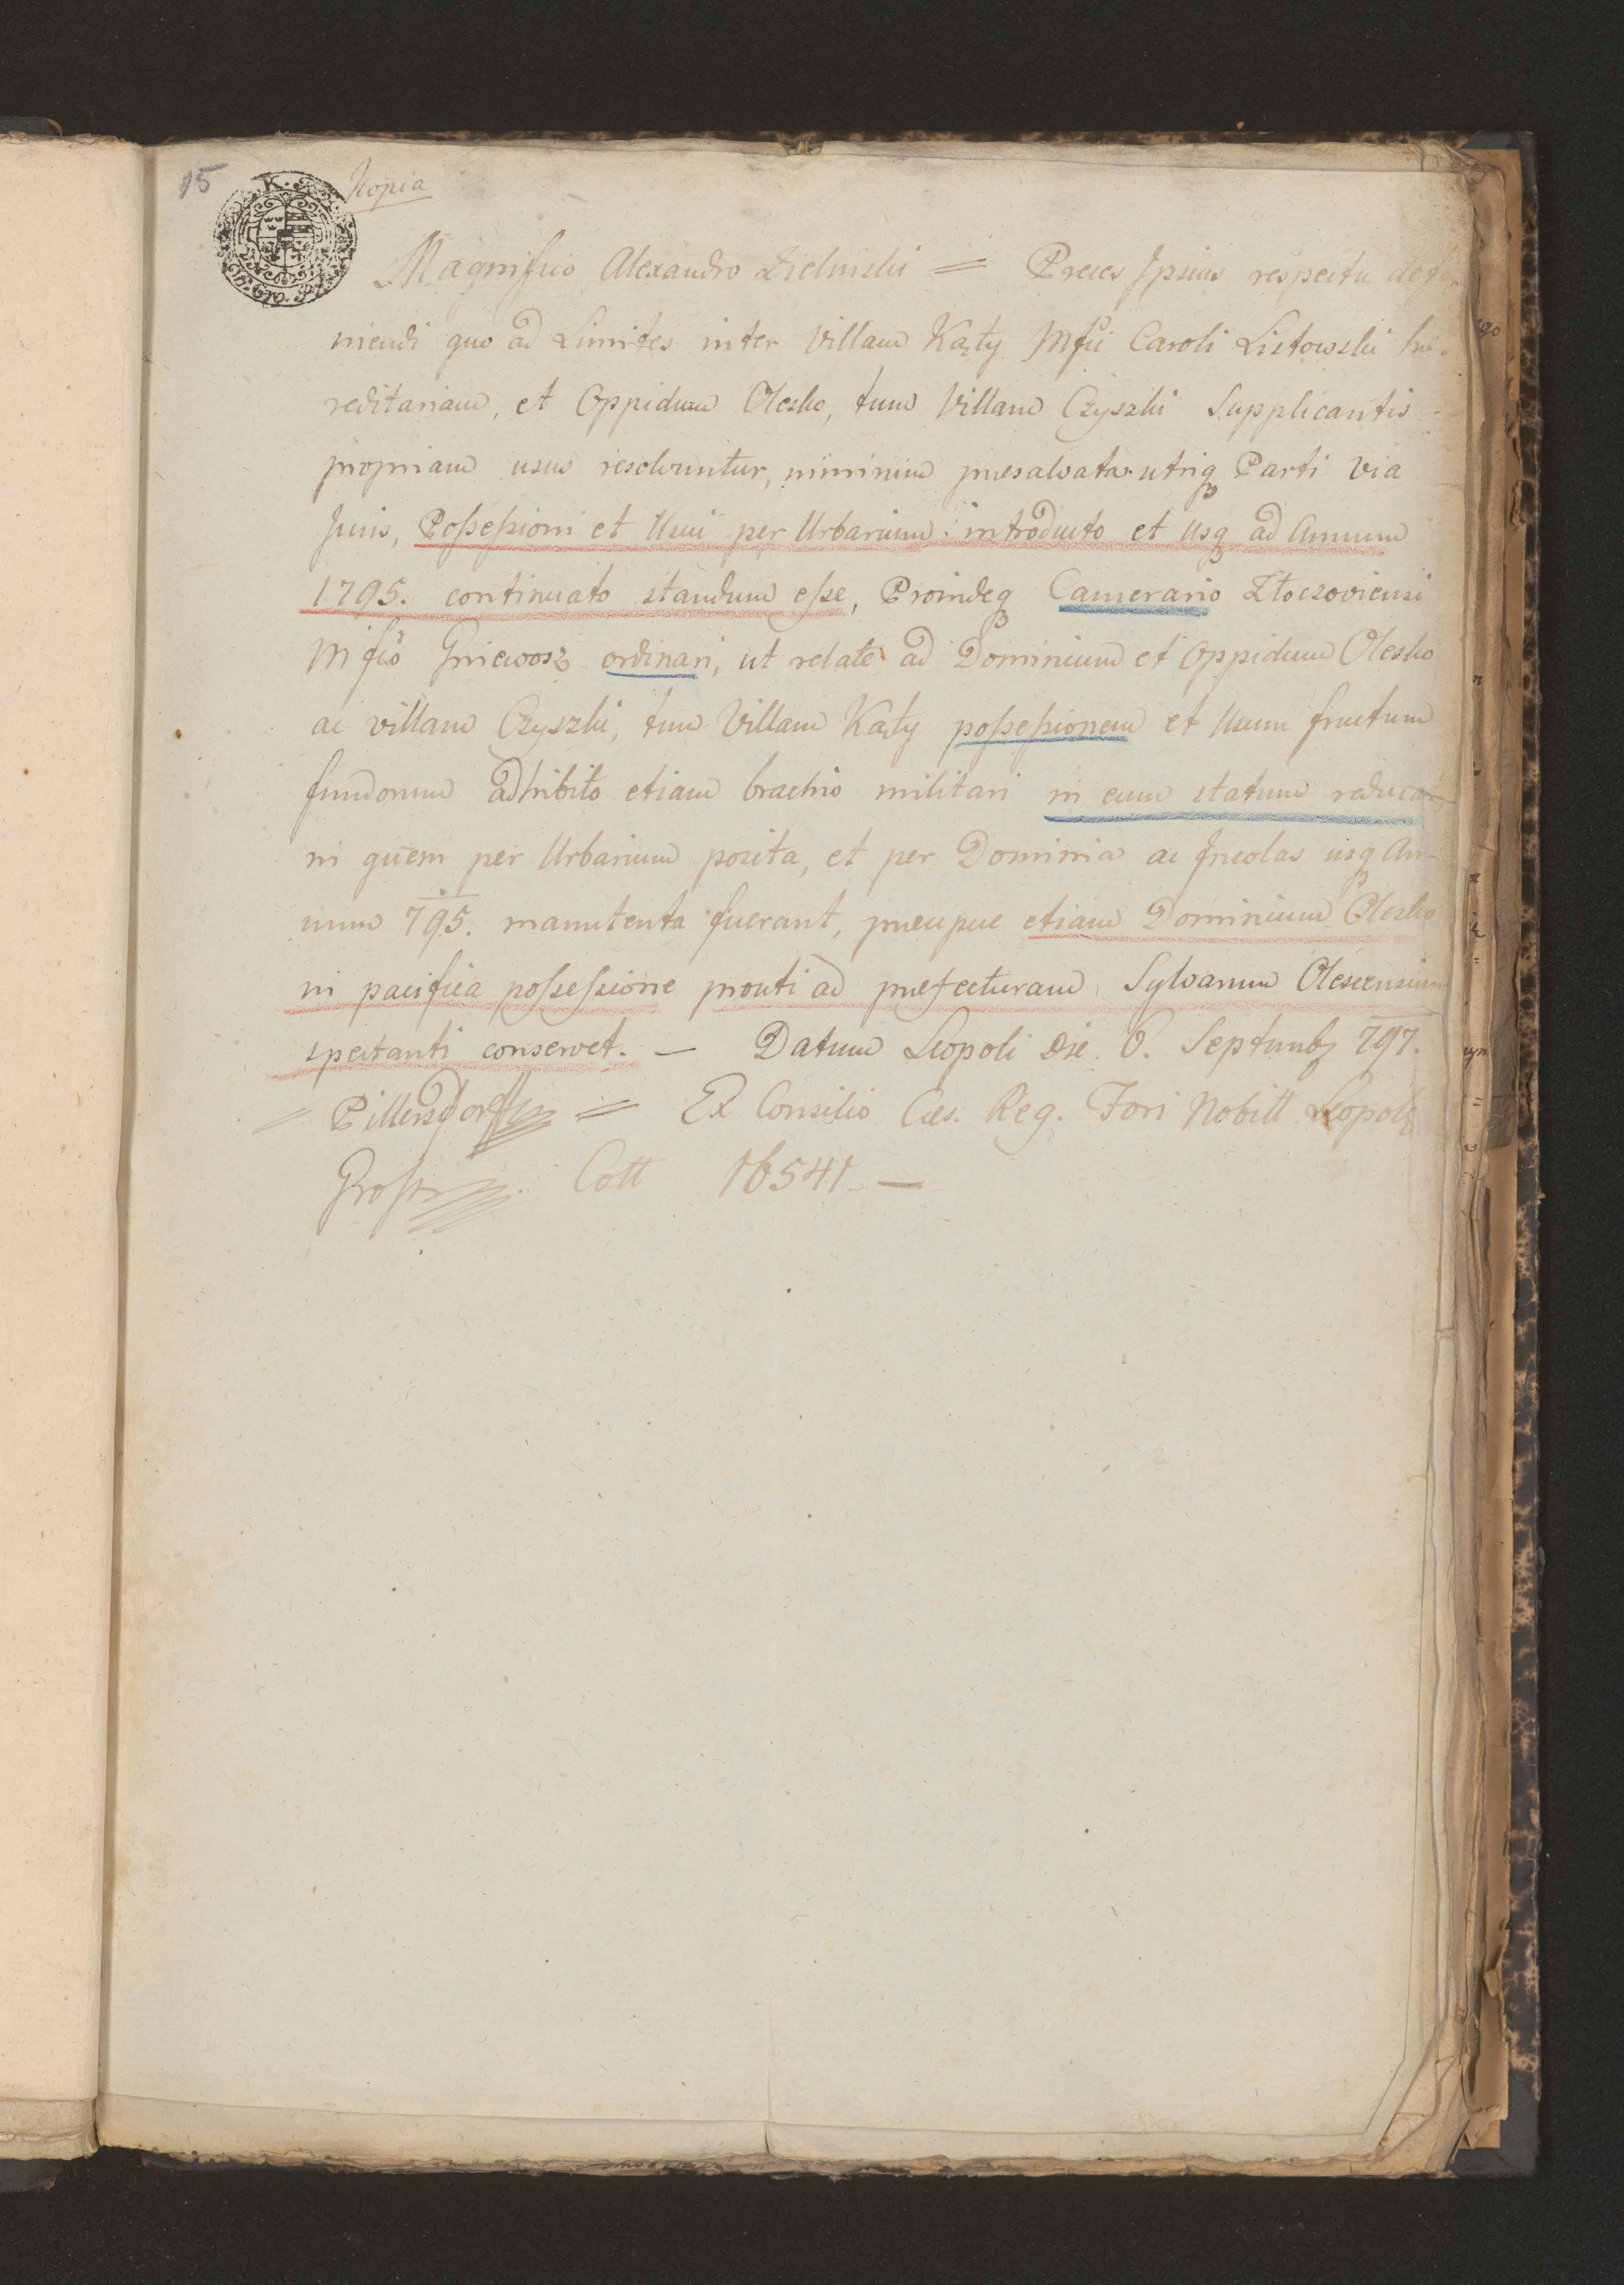 15
Kopia
Magnifico Alexandro Zielinski = Preces Ipsius respectu defi-
niendi quo ad Limites inter Villam Kąty Mfci Caroli Listowski hæ-
reditariam, et Oppidum Olesko, tum Villam Czyszki Supplicantis
propriam usus resolvuntur, nimirum præsalvata utriq Parti via
Juris, Possessioni et Usui per Urbarium introducto et usq ad Annum
1795. continuato standum esse, Proindeq Camerario Złoczoviensi
Mfco Gniewosz ordinari, ut relate ad Dominium et Oppidum Olesko
ac villam Czyszki, tum Villam Kąty possessionem et Usum fructum
fundorum adhibito etiam brachio militari in eum statum reducat
in quem per Urbarium posita, et per Dominia ac Incolas usq An-
num 795. manutenta fuerant, præcipue etiam Dominium Olesko
in pacifica possessione prouti ad præfecturam Sylvarum Olescensium
spectanti conservet. — Datum Leopoli Die 6. Septembr 797.
= Pillersdorff = Ex Consilio Cæs. Reg. Fori Nobill Leopol
Cott 16541 —